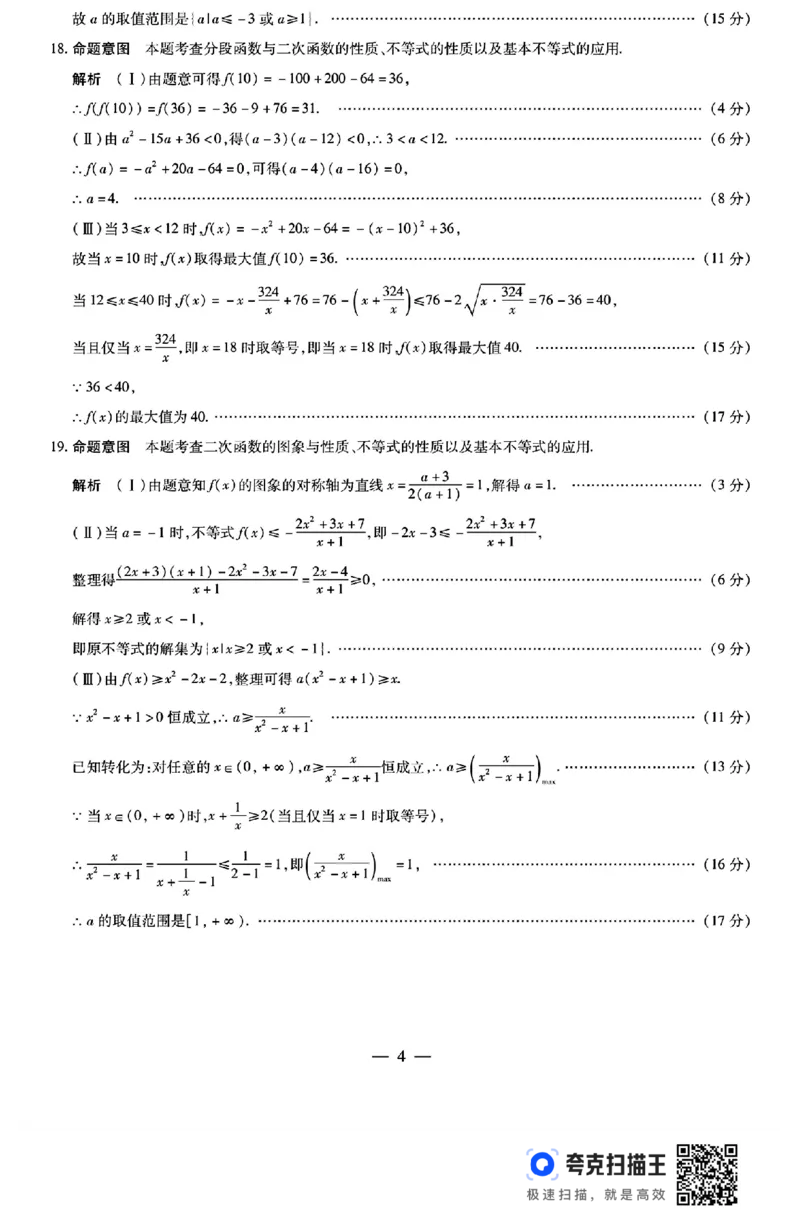 故 a 的取值范围是{a|a≤ -3 或 a≥1}. …………………………………………………… (15 分)
18. 命题意图 本题考查分段函数与二次函数的性质、不等式的性质以及基本不等式的应用.
解析 (Ⅰ)由题意可得 f(10) = -100+200-64=36,
∴ f(f(10))=f(36)= -36-9+76=31. …………………………………………………… (4 分)
(Ⅱ)由 a²-15a+36<0,得(a-3)(a-12)<0,∴ 3<a<12. …………………………………… (6 分)
∴ f(a)= -a²+20a-64=0,可得(a-4)(a-16)=0,
∴ a=4. …………………………………………………………………………………… (8 分)
(Ⅲ)当 3≤x<12 时,f(x)= -x²+20x-64= -(x-10)²+36,
故当 x=10 时,f(x)取得最大值 f(10)=36. …………………………………………………… (11 分)
当 12≤x≤40 时,f(x)= -x-324/x+76=76-(x+324/x)≤76-2√(x·324/x)=76-36=40,
当且仅当 x=324/x,即 x=18 时取等号,即当 x=18 时,f(x)取得最大值 40. …………………………… (15 分)
∵ 36<40,
∴ f(x)的最大值为 40. …………………………………………………………………………… (17 分)
19. 命题意图 本题考查二次函数的图象与性质、不等式的性质以及基本不等式的应用.
解析 (Ⅰ)由题意知 f(x)的图象的对称轴为直线 x=(a+3)/(2(a+1))=1,解得 a=1. …………………… (3 分)
(Ⅱ)当 a= -1 时,不等式 f(x)≤ -(2x²+3x+7)/(x+1),即 -2x-3≤ -(2x²+3x+7)/(x+1),
整理得((2x+3)(x+1)-2x²-3x-7)/(x+1)=(2x-4)/(x+1)≥0, …………………………………………… (6 分)
解得 x≥2 或 x< -1,
即原不等式的解集为{x|x≥2 或 x< -1}. …………………………………………………… (9 分)
(Ⅲ)由 f(x)≥x²-2x-2,整理可得 a(x²-x+1)≥x.
∵ x²-x+1>0 恒成立,∴ a≥x/(x²-x+1). …………………………………………………… (11 分)
已知转化为:对任意的 x∈(0,+∞),a≥x/(x²-x+1)恒成立,∴ a≥(x/(x²-x+1))max. …………………… (13 分)
∵ 当 x∈(0,+∞)时,x+1/x≥2(当且仅当 x=1 时取等号),
∴ x/(x²-x+1)=1/(x+1/x-1)≤1/(2-1)=1,即(x/(x²-x+1))max=1, …………………………………… (16 分)
∴ a 的取值范围是[1,+∞). …………………………………………………………………… (17 分)
— 4 —
夸克扫描王
极速扫描，就是高效